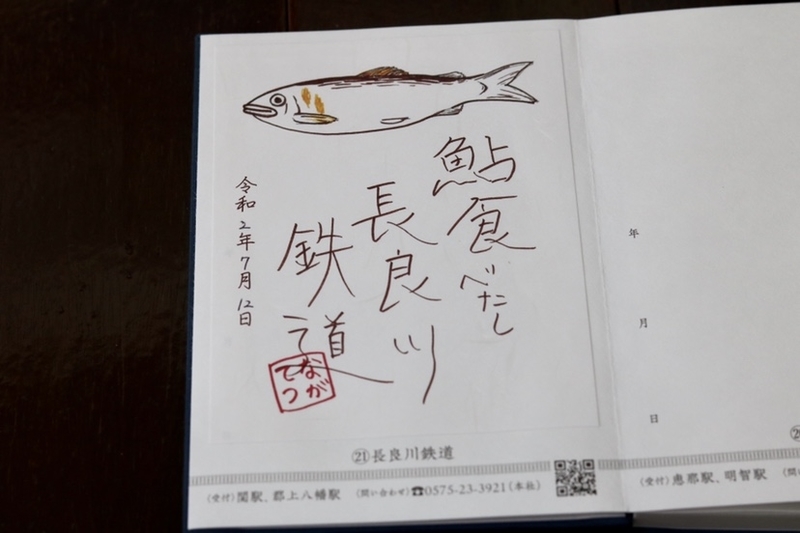 鮎食べたし
長良川
鉄道
令和2年7月12日
なが
てつ
㉑長良川鉄道
(受付)関駅、郡上八幡駅 (問い合わせ)☎0575-23-3921(本社)
年
月
日
(受付)恵那駅、明智駅